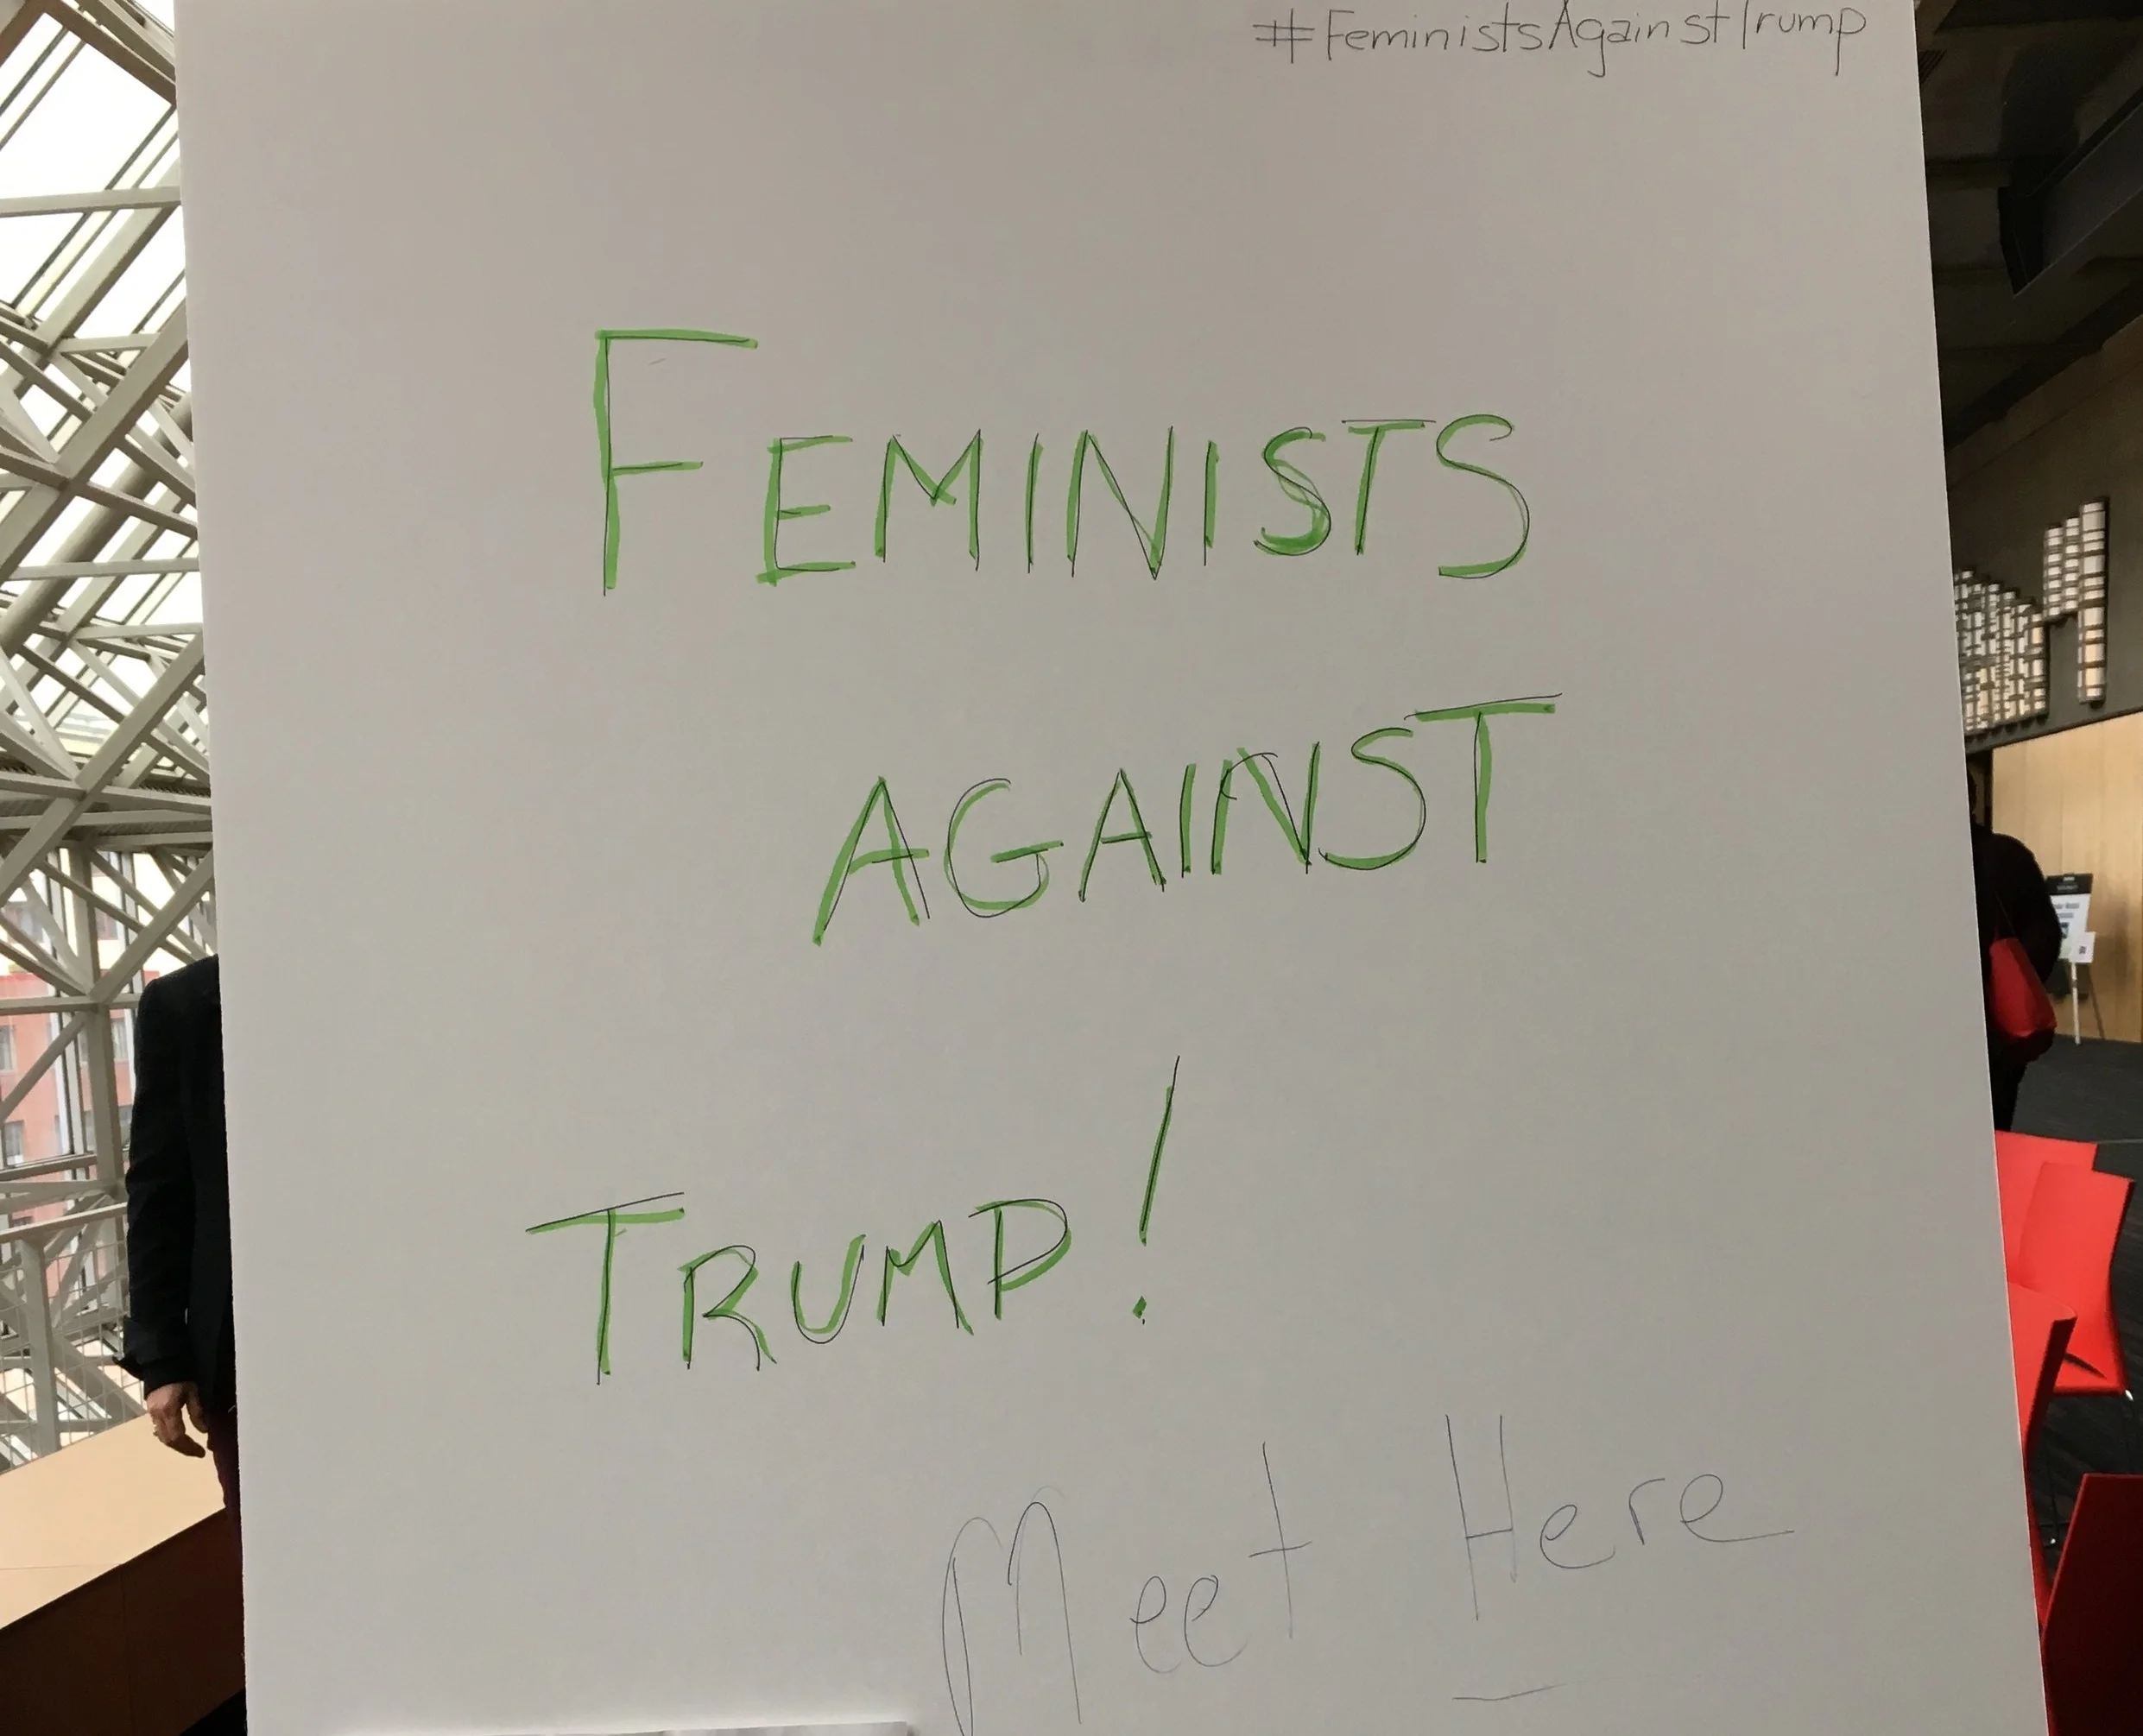 #FeministsAgainstTrump
FEMINISTS
AGAINST
TRUMP!
Meet Here